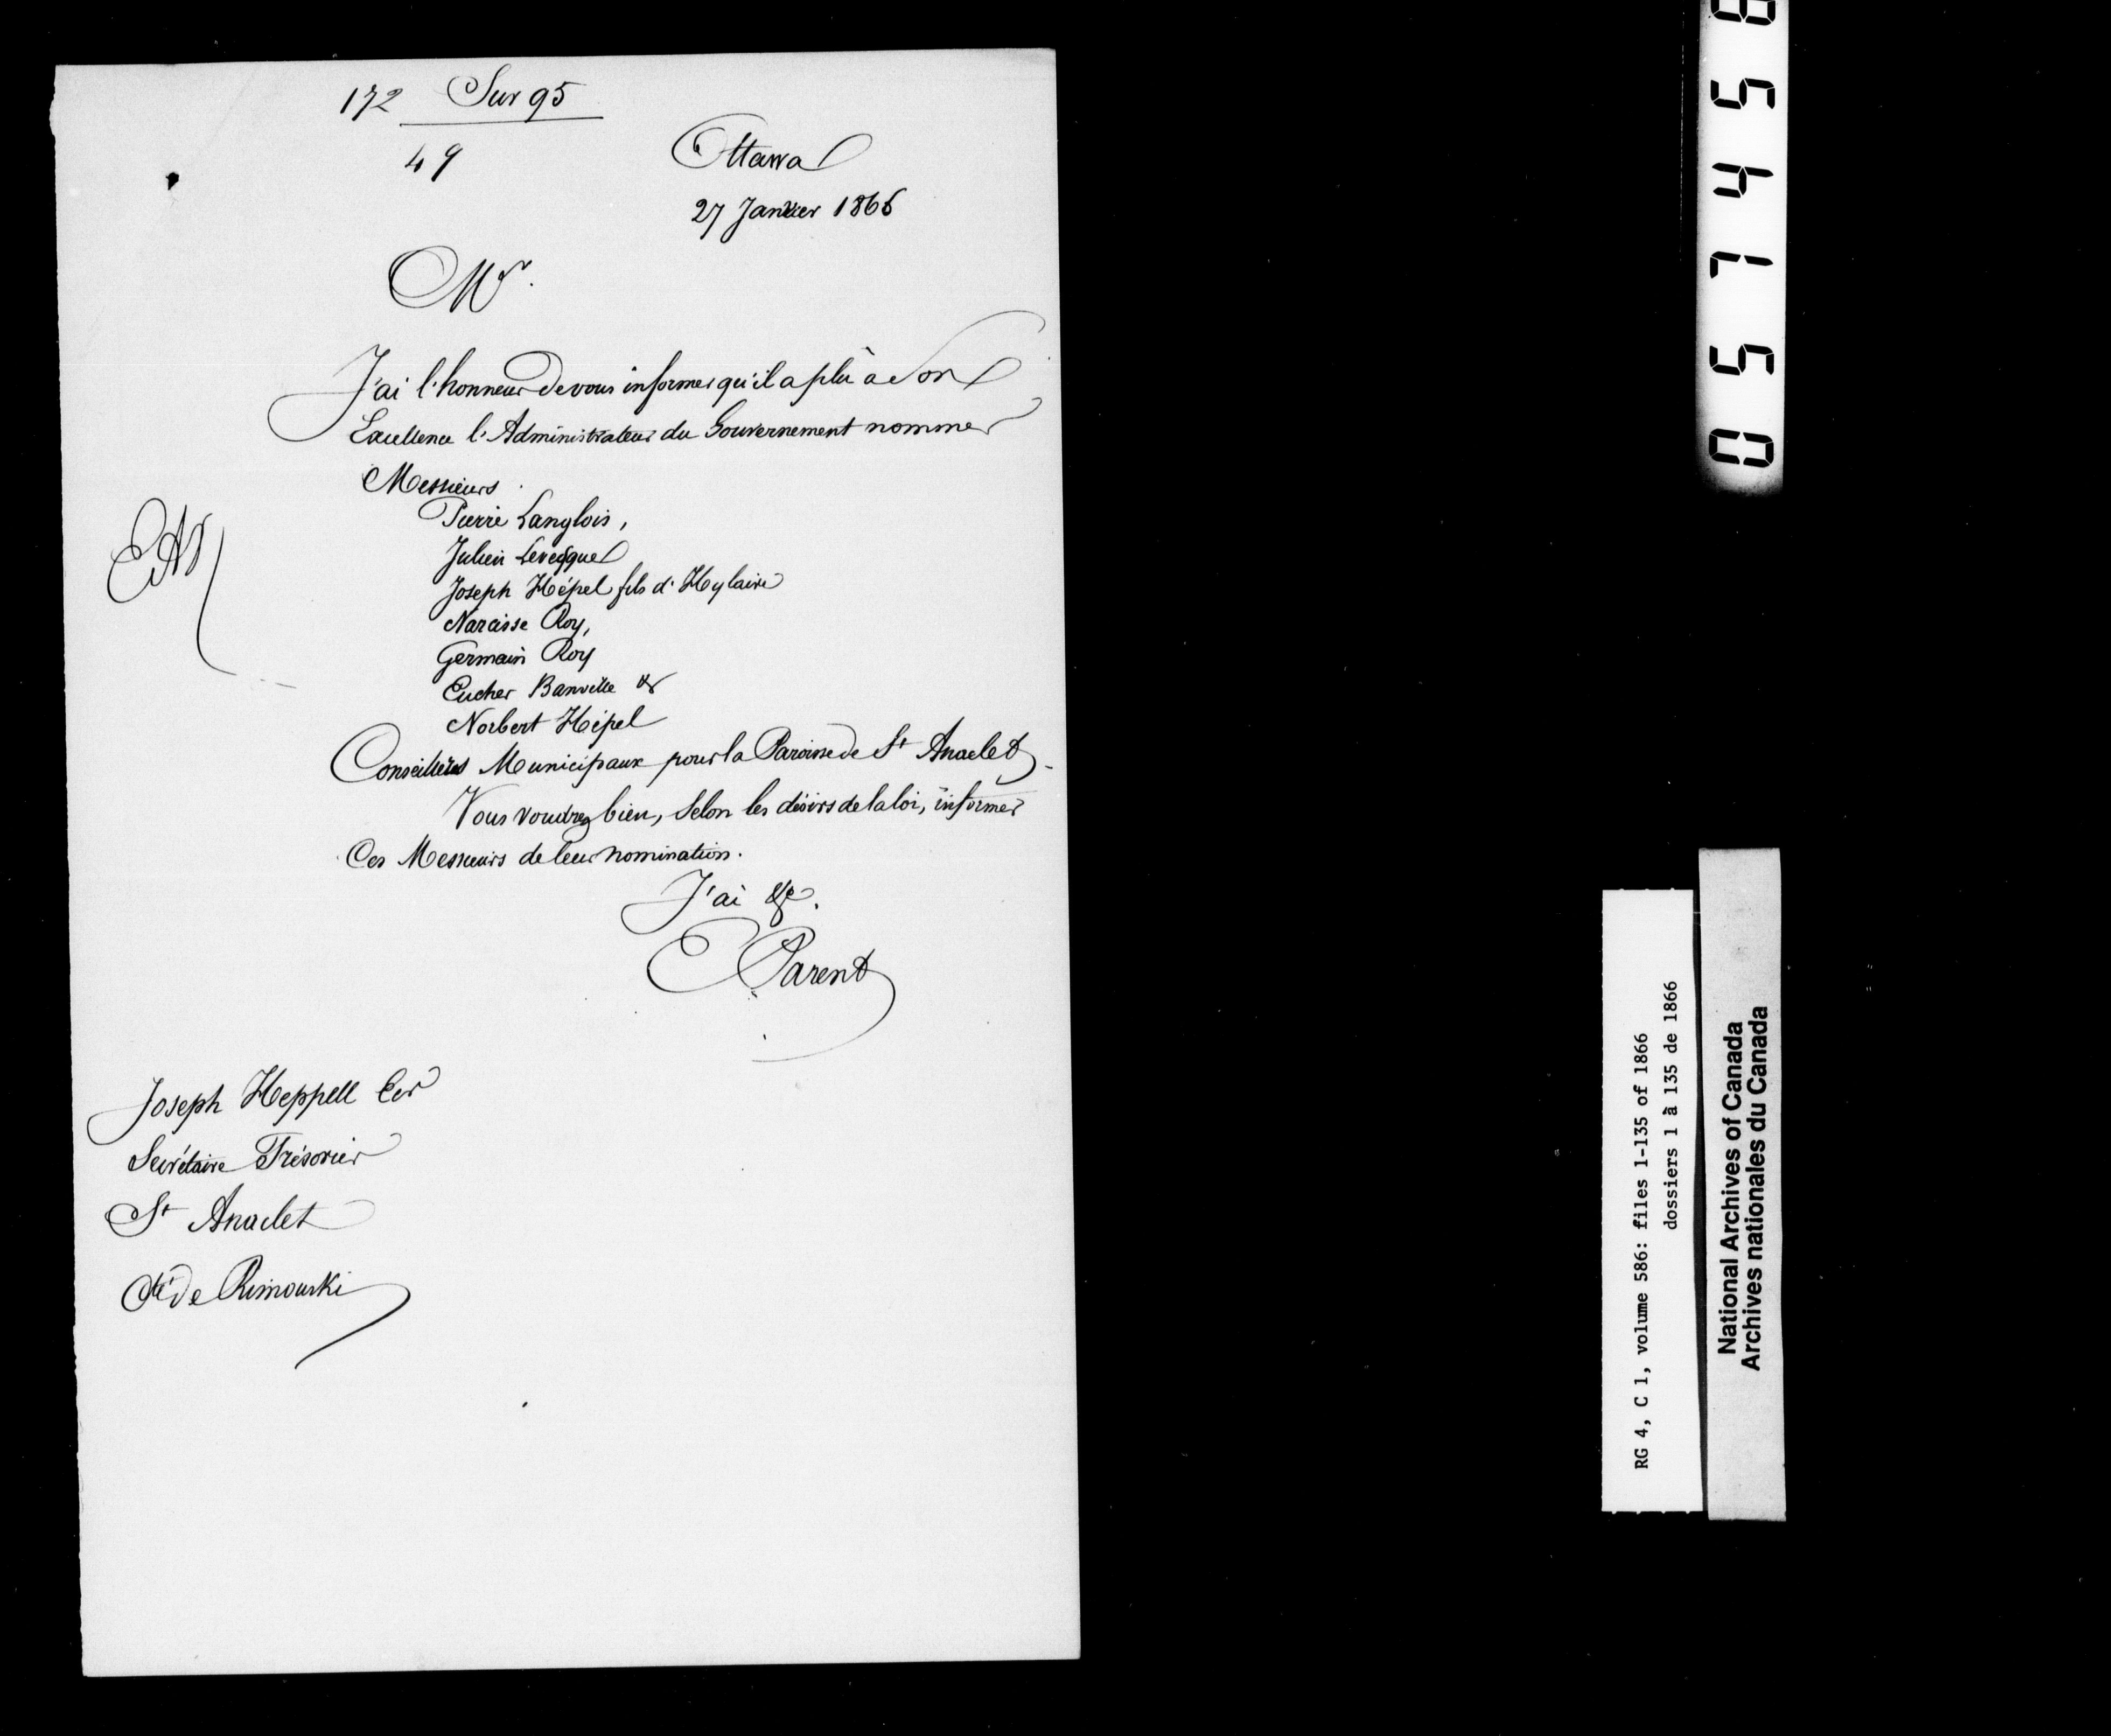 172 Sur 95
49
Ottawa
27 Janvier 1866
Mr.
J'ai l'honneur de vous informer qu'il a plû à Son
Excellence l'Administrateur du Gouvernement nommer
Messieurs
Pierre Langlois,
Julien Levesque
Joseph Hépel fils d'Hylaire
Narcisse Roy,
Germain Roy
Eucher Banville &
Norbert Hépel
Conseillers Municipaux pour la Paroisse de St Anaclet
Vous voudrez bien, selon les désirs de la loi, informer
Ces Messieurs de leur nomination.
J'ai &c.
E Parent
Joseph Heppell Ecr
Secrétaire Trésorier
St Anaclet
Cté de Rimouski
057458
RG 4, C 1, volume 586: files 1-135 of 1866
dossiers 1 à 135 de 1866
National Archives of Canada
Archives nationales du Canada